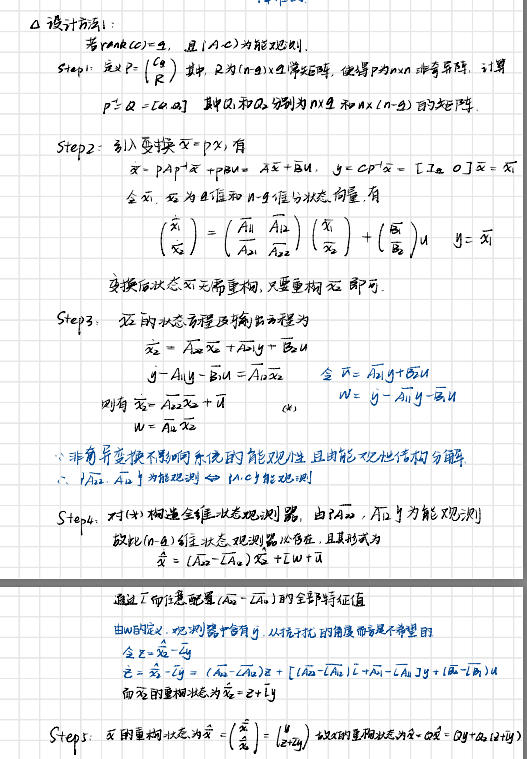 △ 设计方法1:
若rank(C)=q, 且{A·C}为能观测.
Step1: 定义P=(Cq R) 其中, R为(n-q)×q常矩阵, 使得P为n×n非奇异阵, 计算
P⁻¹=Q=[Q1 Q2] 其中Q1和Q2分别为n×q和n×(n-q)的矩阵.
Step2: 引入变换x̄=Px, 有
ẋ̄=PAP⁻¹x̄+PBu=Āx̄+B̄u, y=CP⁻¹x̄=[Iq 0]x̄=x̄1
令x̄1, x̄2为q维和n-q维分状态向量, 有
(ẋ̄1 ẋ̄2)=(Ā11 Ā12 Ā21 Ā22)(x̄1 x̄2)+(B̄1 B̄2)u y=x̄1
变换后状态x̄1无需重构, 只要重构x̄2即可.
Step3: x̄2的状态方程及输出方程为
ẋ̄2=Ā22x̄2+Ā21y+B̄2u
ẏ-Ā11y-B̄1u=Ā12x̄2 令ū=Ā21y+B̄2u
则有 ẋ̄2=Ā22x̄2+ū (*) w=ẏ-Ā11y-B̄1u
w=Ā12x̄2
∵非奇异变换不影响系统的能观性 且由能观性结构分解.
∴{Ā22, Ā12}为能观测⇔{A,C}能观测
Step4: 对(*)构造全维状态观测器, 由{Ā22, Ā12}为能观测
故此(n-q)维状态观测器必存在, 且其形式为
x̄̂̇2=(Ā22-L̄Ā12)x̄̂2+L̄w+ū
通过L̄可任意配置(Ā22-L̄Ā12)的全部特征值
由w的定义, 观测器中含有ẏ, 从抗干扰的角度而言是不希望的
令z=x̄̂2-L̄y
ż=x̄̂̇2-L̄ẏ=(Ā22-L̄Ā12)z+[(Ā22-L̄Ā12)L̄+Ā21-L̄Ā11]y+(B̄2-L̄B̄1)u
而x̄2的重构状态为x̄̂2=z+L̄y
Step5: x̄的重构状态为x̄̂=(x̄̂1 x̄̂2)=(y z+L̄y) 故x的重构状态为x̂=Qx̄̂=Q1y+Q2(z+L̄y)